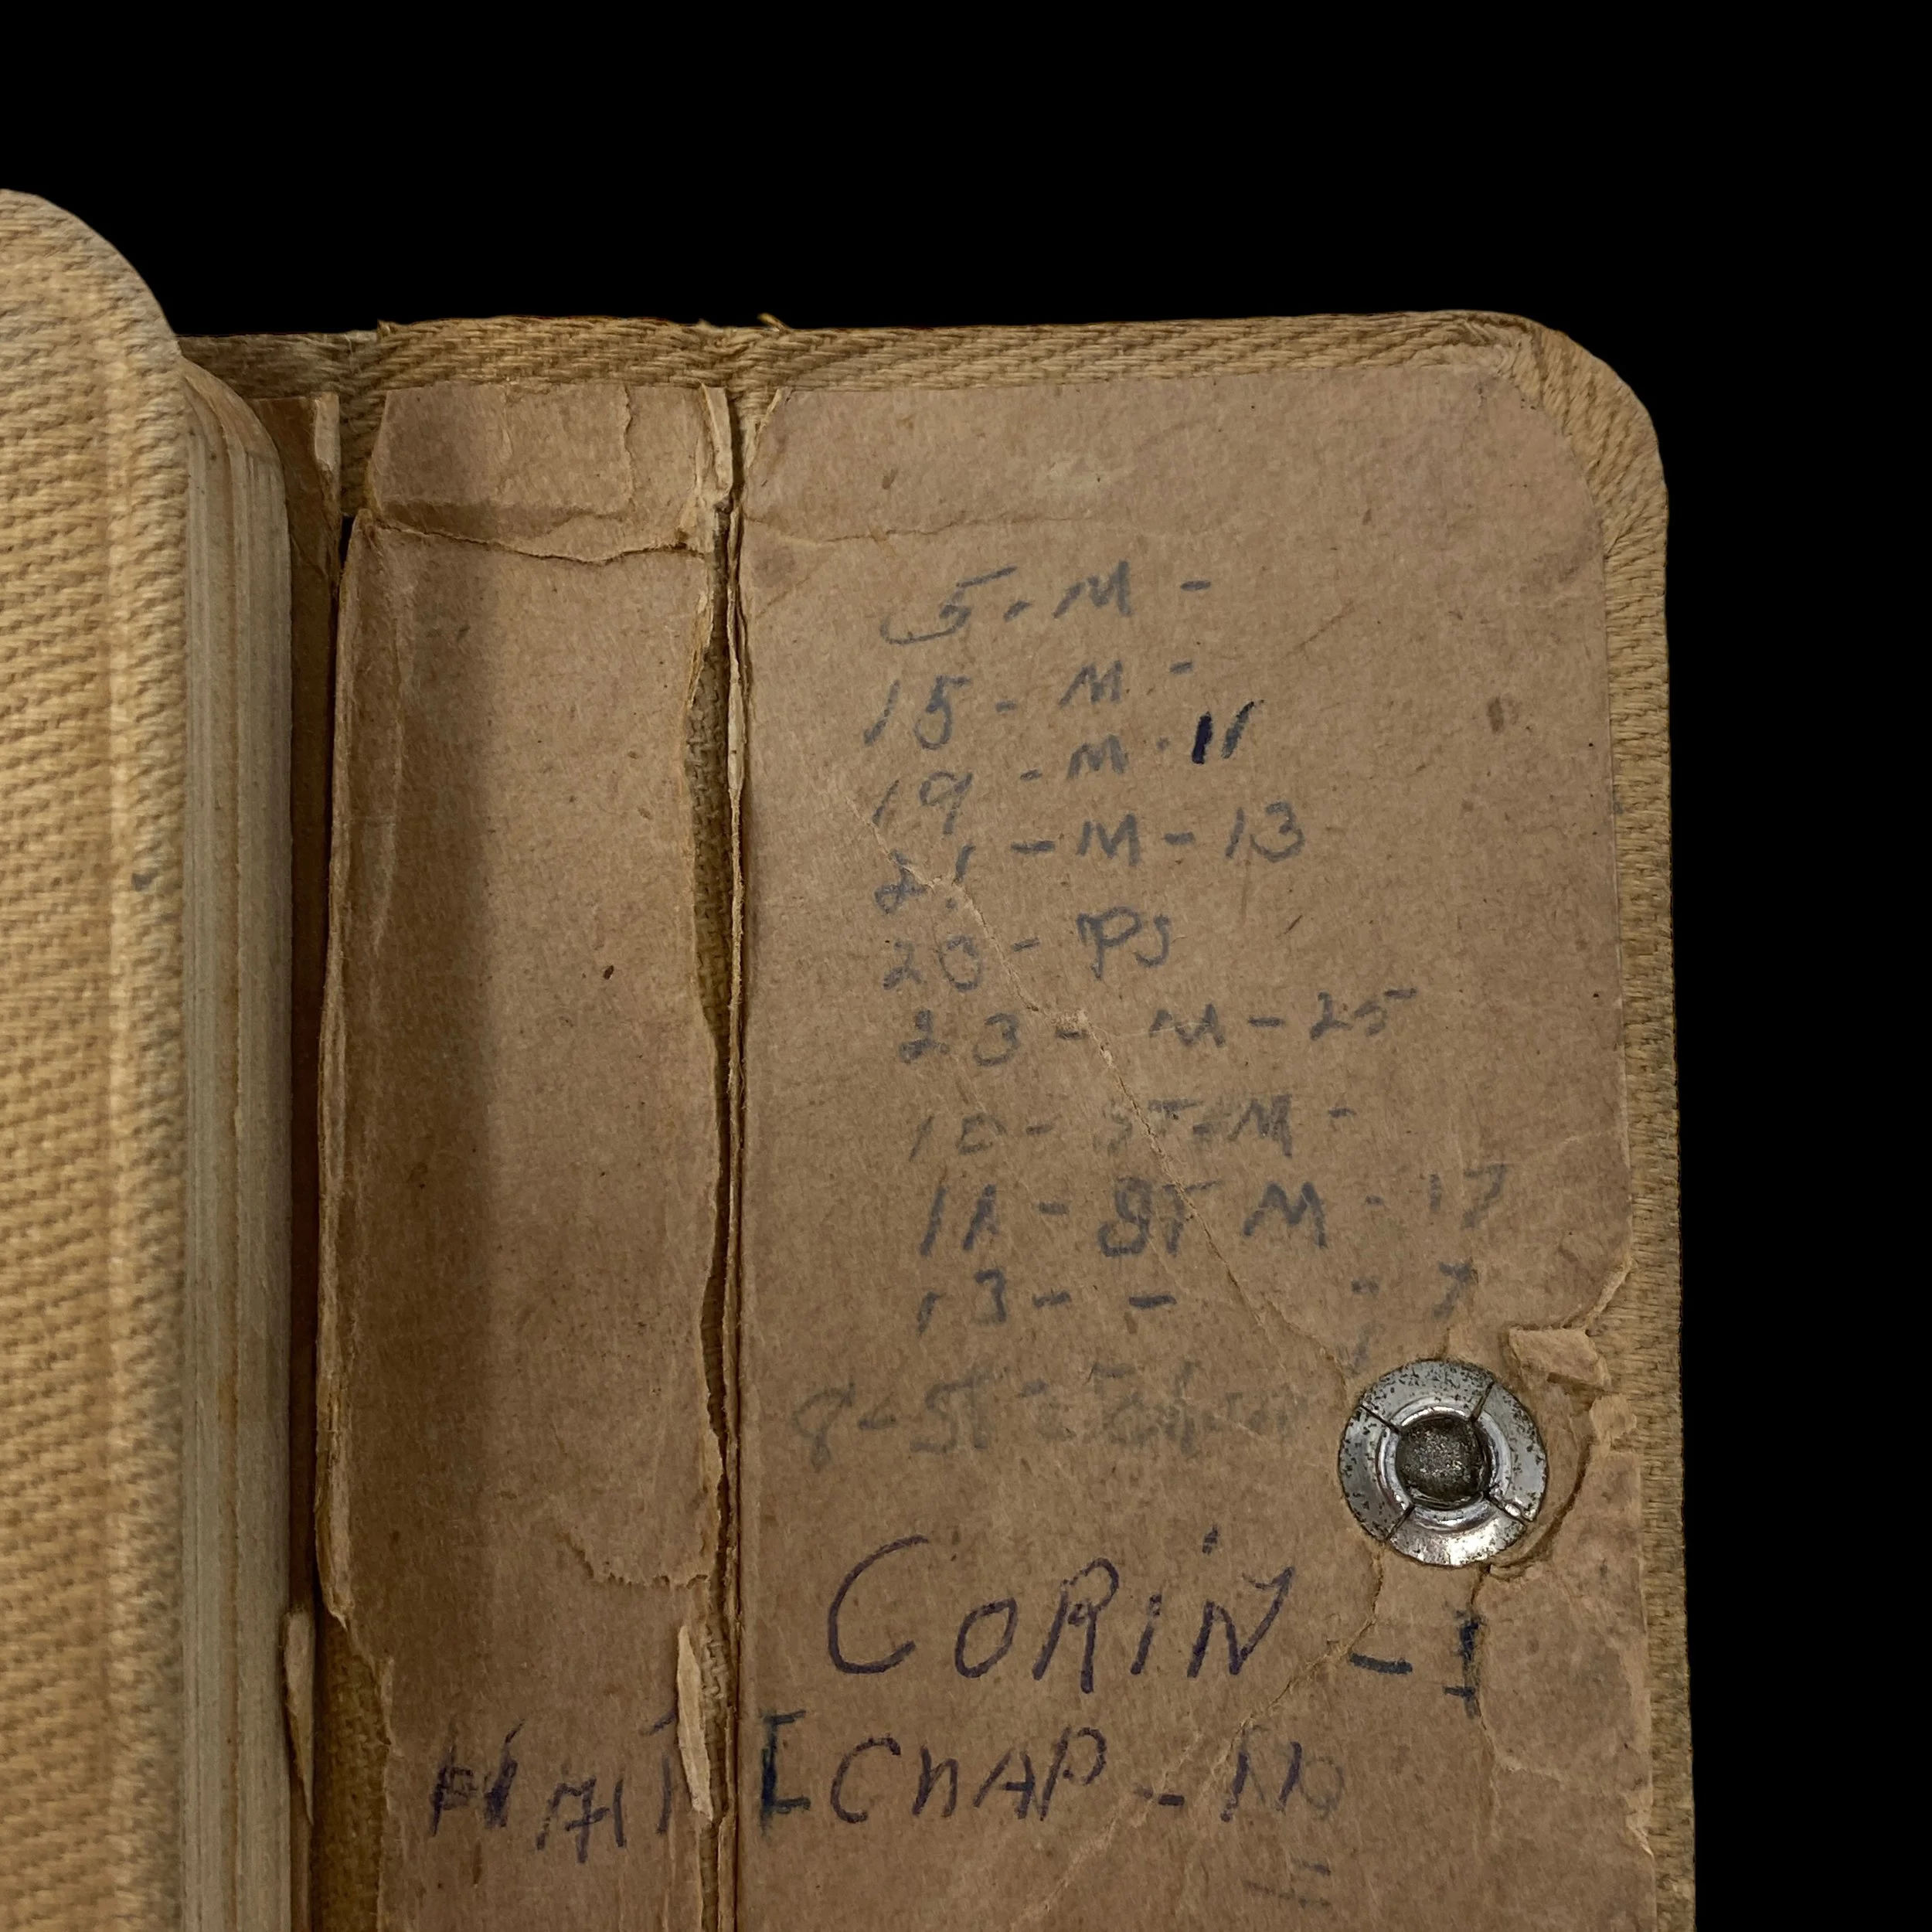 5 - M -
15 - M -
19 - M - 11
21 - M - 13
20 - PS
23 - M - 25
10 - ST - M -
11 - ST M - 17
13 - - - 7
8 - St -
CORiN - I
CHAP -